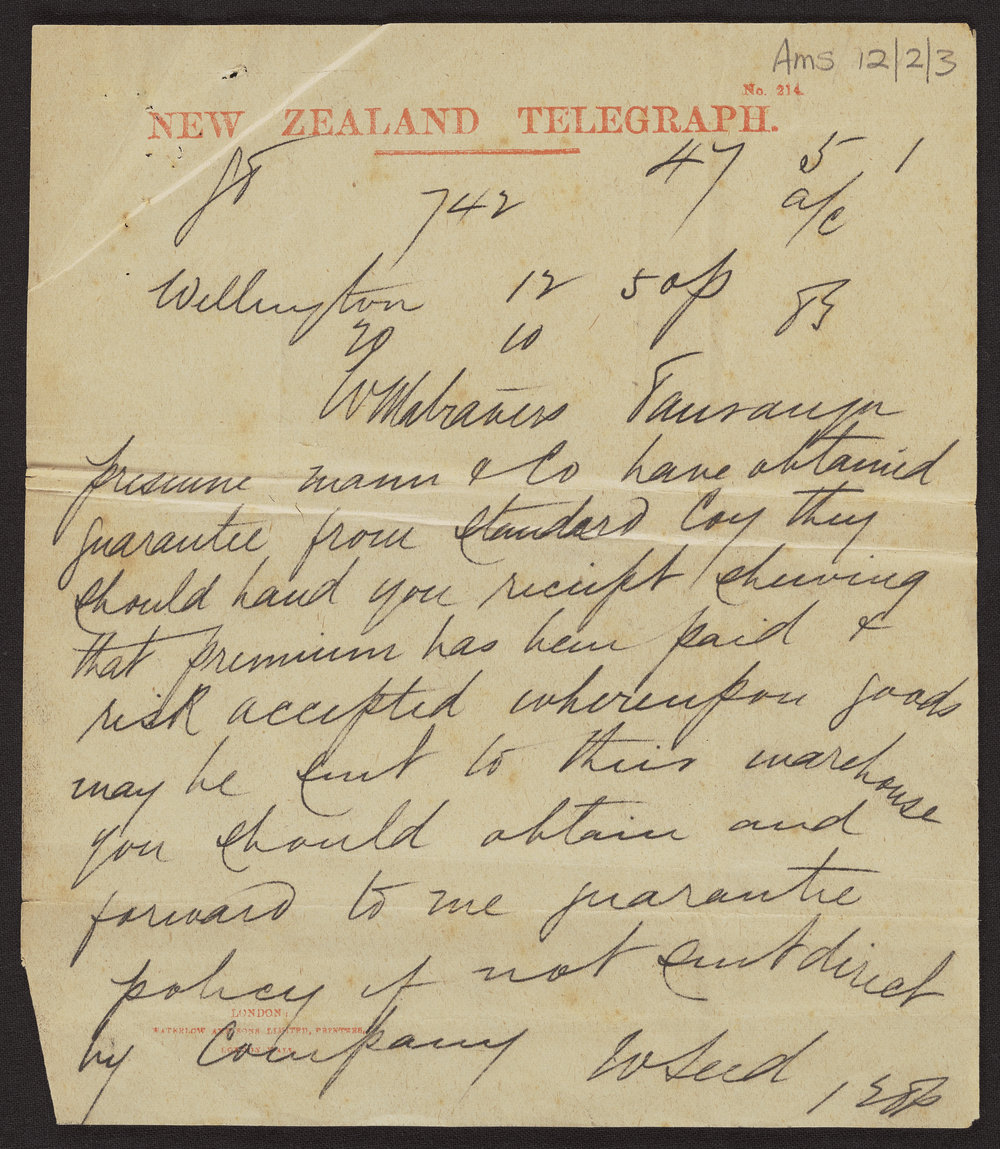 Ams 12/2/3
No. 214.
NEW ZEALAND TELEGRAPH.
47 5 1
742 a/c
Wellington 12 50p
20 10
Tauranga
presume mann & Co have obtained
guarantee from Standard Coy they
should hand you receipt shewing
that premium has been paid &
risk accepted whereupon goods
may be sent to their warehouse
you should obtain and
forward to me guarantee
policy if not sent direct
by Company WSeed
LONDON:
WATERLOW AND SONS LIMITED, PRINTERS,
LONDON WALL.